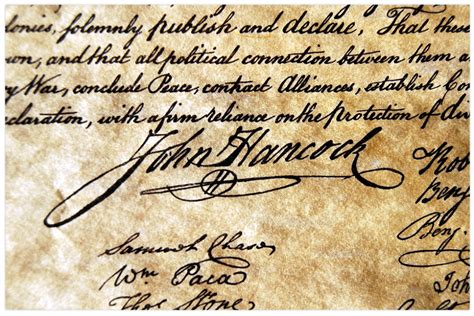 lonies, solemnly publish and declare, That these
wn, and that all political connection between them a
y War, conclude Peace, contract Alliances, establish Co
claration, with a firm reliance on the Protection of div
John Hancock
Rob
Benj
Benj.
Samuel Chase
Wm. Paca
Thos. Stone
Joh